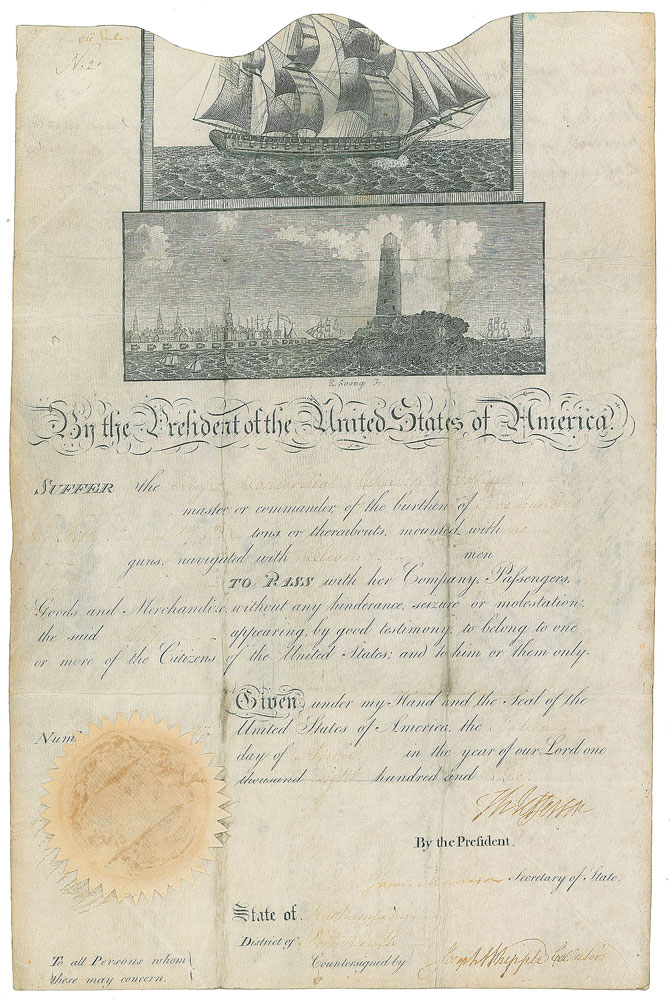 N. 2
E. Savage Fc.
By the President of the United States of America.
SUFFER the Ship
master or commander, of the burthen of
tons or thereabouts, mounted with no
guns, navigated with Eleven men
TO PASS with her Company, Passengers,
Goods and Merchandize, without any hinderance, seizure or molestation:
the said Ship appearing by good testimony to belong to one
or more of the Citizens of the United States; and to him or them only.
Given under my Hand and the Seal of the
United States of America, the
Num
day of in the year of our Lord one
thousand eight hundred and
Th Jefferson
By the President,
James Madison Secretary of State.
State of New hampshire
District of Portsmouth
Countersigned by Joseph Whipple Collector
To all Persons whom
these may concern.